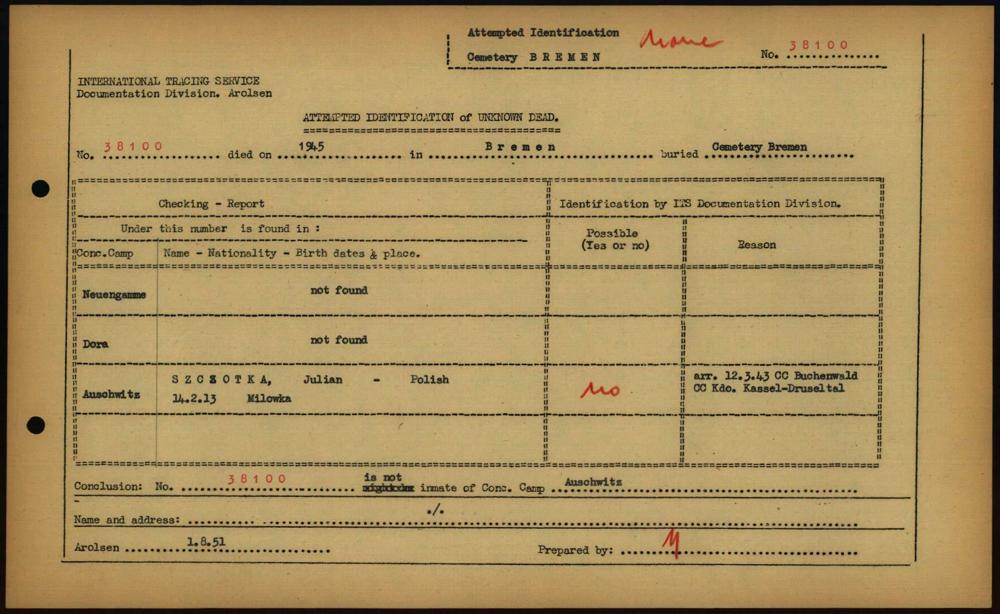 Attempted Identification None
Cemetery B R E M E N No. 38100
INTERNATIONAL TRACING SERVICE
Documentation Division. Arolsen
ATTEMPTED IDENTIFICATION of UNKNOWN DEAD.
No. 38100 died on 1945 in B r e m e n buried Cemetery Bremen
Checking - Report Identification by ITS Documentation Division.
Under this number is found in :
Possible
(Yes or no) Reason
Conc.Camp Name - Nationality - Birth dates & place.
Neuengamme not found
Dora not found
Auschwitz S Z C Z O T K A, Julian - Polish
14.2.13 Milowka
no
arr. 12.3.43 CC Buchenwald
CC Kdo. Kassel-Druseltal
Conclusion: No. 38100 is not inmate of Conc. Camp Auschwitz
Name and address: ./.
Arolsen 1.8.51 Prepared by: